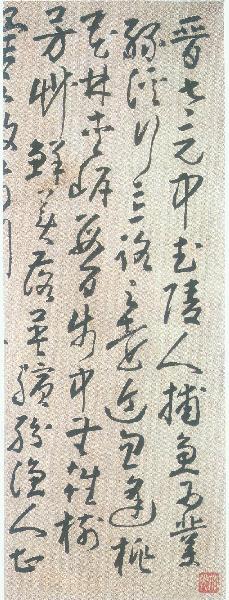 晉太元中武陵人捕魚為業
緣溪行忘路之遠近忽逢桃
花林夾岸數百步中無雜樹
芳草鮮美落英繽紛漁人甚